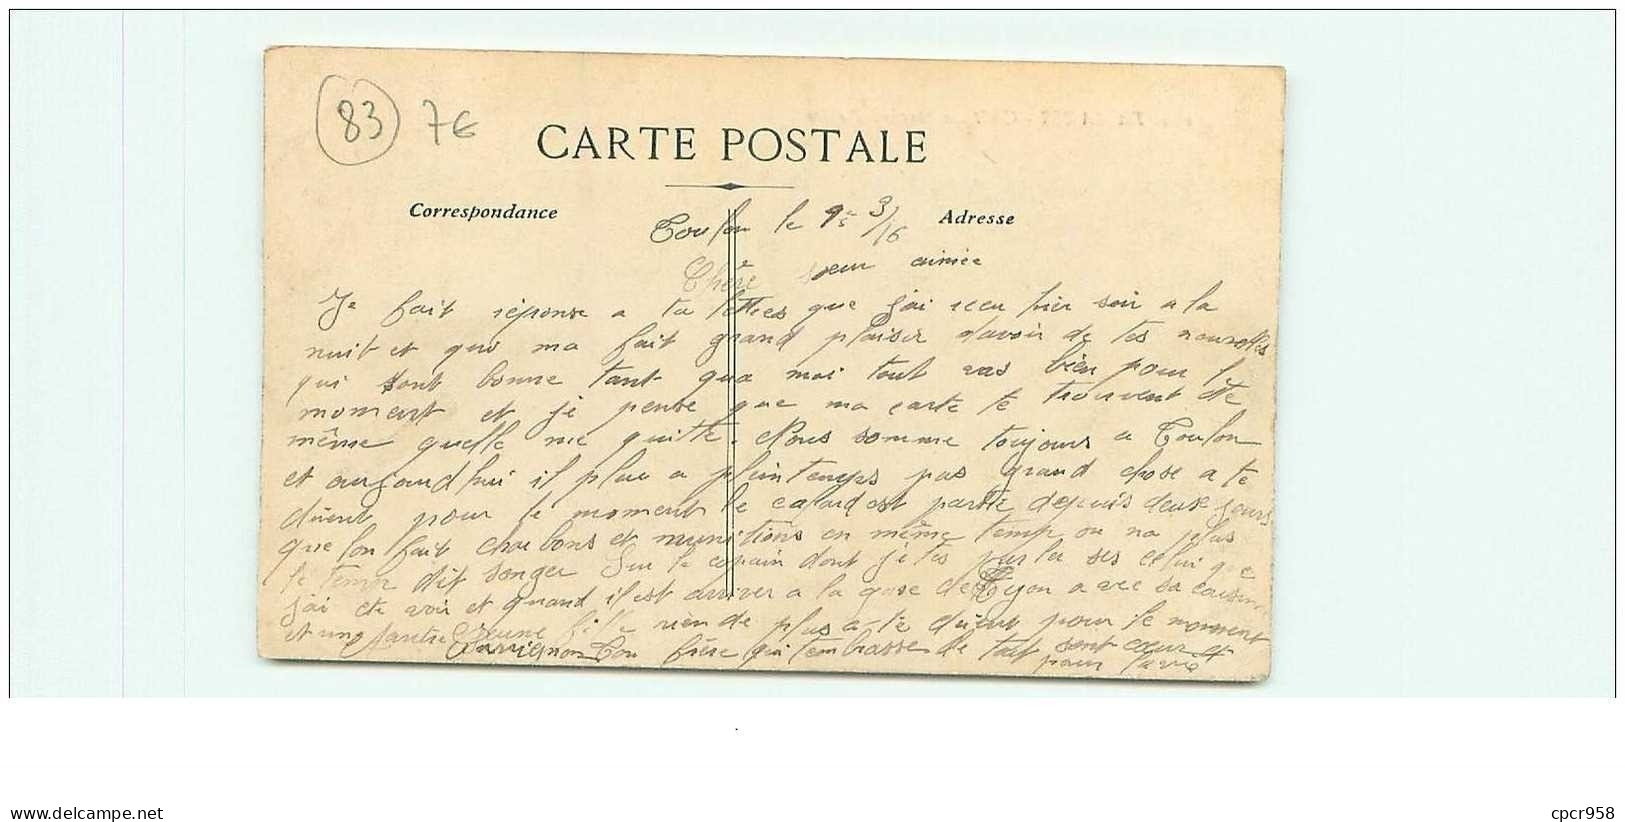 83 7€
CARTE POSTALE
Correspondance
Adresse
Toulon le 3/16
Chère soeur aimée
Je fait réponse a ta lettres que j'ai recu hier soir a la
nuit et qui ma fait grand plaisir d'avoir de tes nouvelles
qui sont bonne tant qua moi tout vas bien pour l
moment et je pense que ma carte te trouvent de
même quelle me quitte. Nous somme toujours a Toulon
et aujourd'hui il plu a plein temps pas grand chose a te
dirent pour le moment le est partie depuis deux jours
que lon fait charbons et munitions en même temp on na plus
le temp dit songer Sur le copain dont je tes parler ses celui que
j'ai été voir et quand il est arriver a la gare de avec sa cousine
et une autre jeune fille rien de plus a te dirent pour le moment
Ton frère qui t'embrasse de tout sont coeur et
pour la vie
cpcr958
https://www.delcampe.net